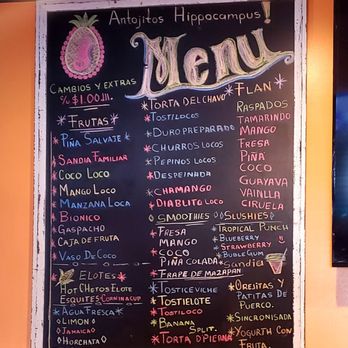 Antojitos Hippocampus!
Menu
Cambios y extras
% $1.00
Frutas
Piña Salvaje
Sandia Familiar
Coco Loco
Mango Loco
Manzana Loca
Bionico
Gaspacho
Caja de Fruta
Vaso de Coco
Elotes
Hot Chetos Elote
Esquites: Corn in a cup
Agua Fresca
Limon
Jamaico
Horchata
Torta del Chavo
Tostilocos
Duro preparado
Churros Locos
Pepinos Locos
Despeinada
Chamango
Diablito Loco
Smoothies
Fresa
Mango
Coco
Piña Colada
Frape de Mazapan
Tosticeviche
Tostielote
Tostiloco
Banana
Split.
Torta D'pierna
Flan
Raspados
Tamarindo
Mango
Fresa
Piña
Coco
Guayava
Vainlla
Ciruela
Sushies
Tropical Punch
Blueberry
Strawberry
Buble Gum
Sandia
Orejitas y
Patitas de
Puerco.
Sincronisada
Yogurth con
Fruta.